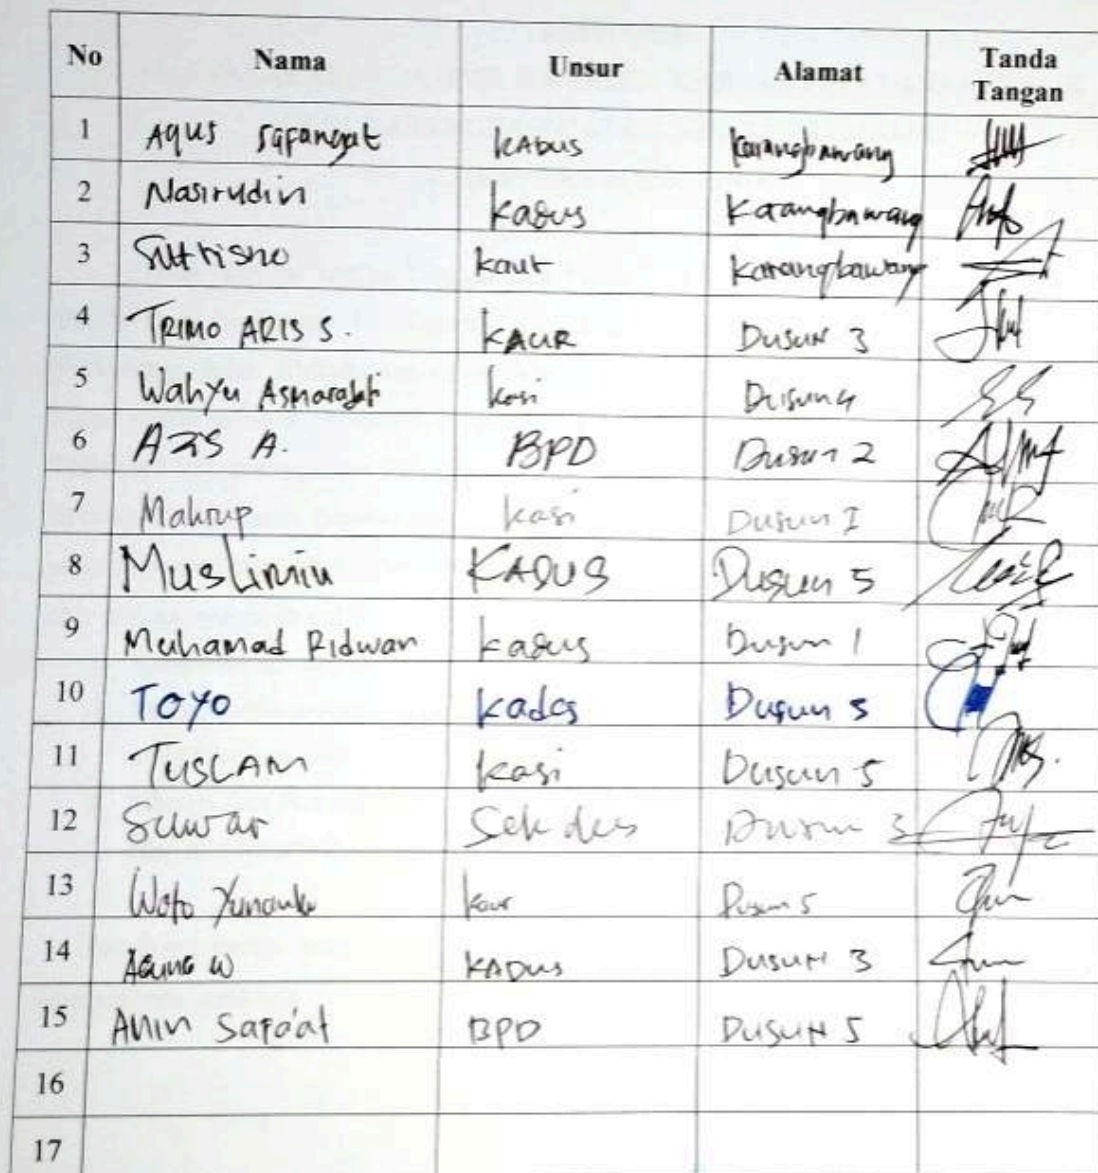 No Nama Unsur Alamat Tanda Tangan
1 Agus Safangat KADUS Karangbawang
2 Nasirudin Kadus Karangbawang
3 Sutrisno Kaur Karangbawang
4 TRIMO ARIS S. KAUR DUSUN 3
5 Wahyu Kasi Dusun 4
6 AZIS A. BPD Dusun 2
7 Mahrup Kasi Dusun I
8 Muslimin KADUS Dusun 5
9 Muhamad Ridwan Kadus Dusun 1
10 TOYO Kades Dusun 5
11 TUSLAM Kasi Dusun 5
12 Suwar Sekdes Dusun 3
13 Kaur Dusun 5
14 AGUNG W KADUS DUSUN 3
15 Safa'at BPD DUSUN 5
16
17